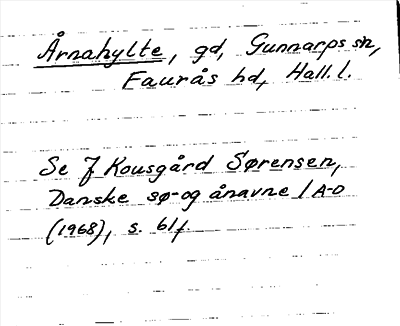 Årnahylte, gd, Gunnarps sn,
Faurås hd, Hall. l.
Se J Kousgård Sørensen,
Danske sø- og ånavne 1 A-D
(1968), s. 61f.